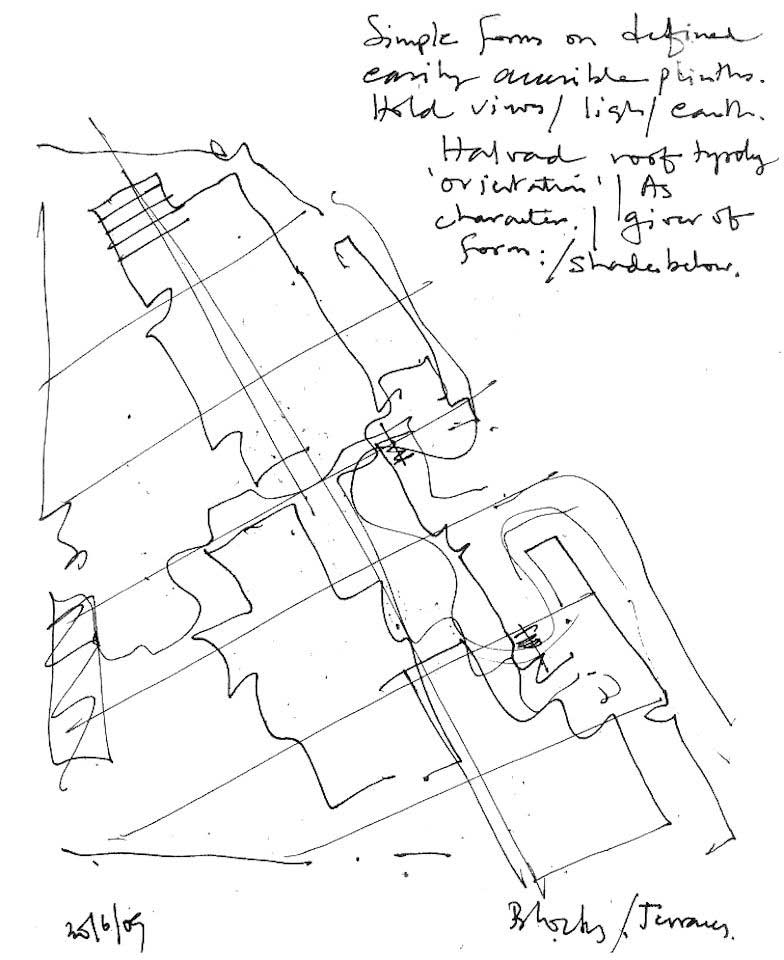 Simple forms on defined
easily accessible plinths.
Hold views/ light/ earth.
Halvad roof typoly
'orientation' | As
character. | giver of
form: / shades below.
20/6/09
Blocks / Terraces.